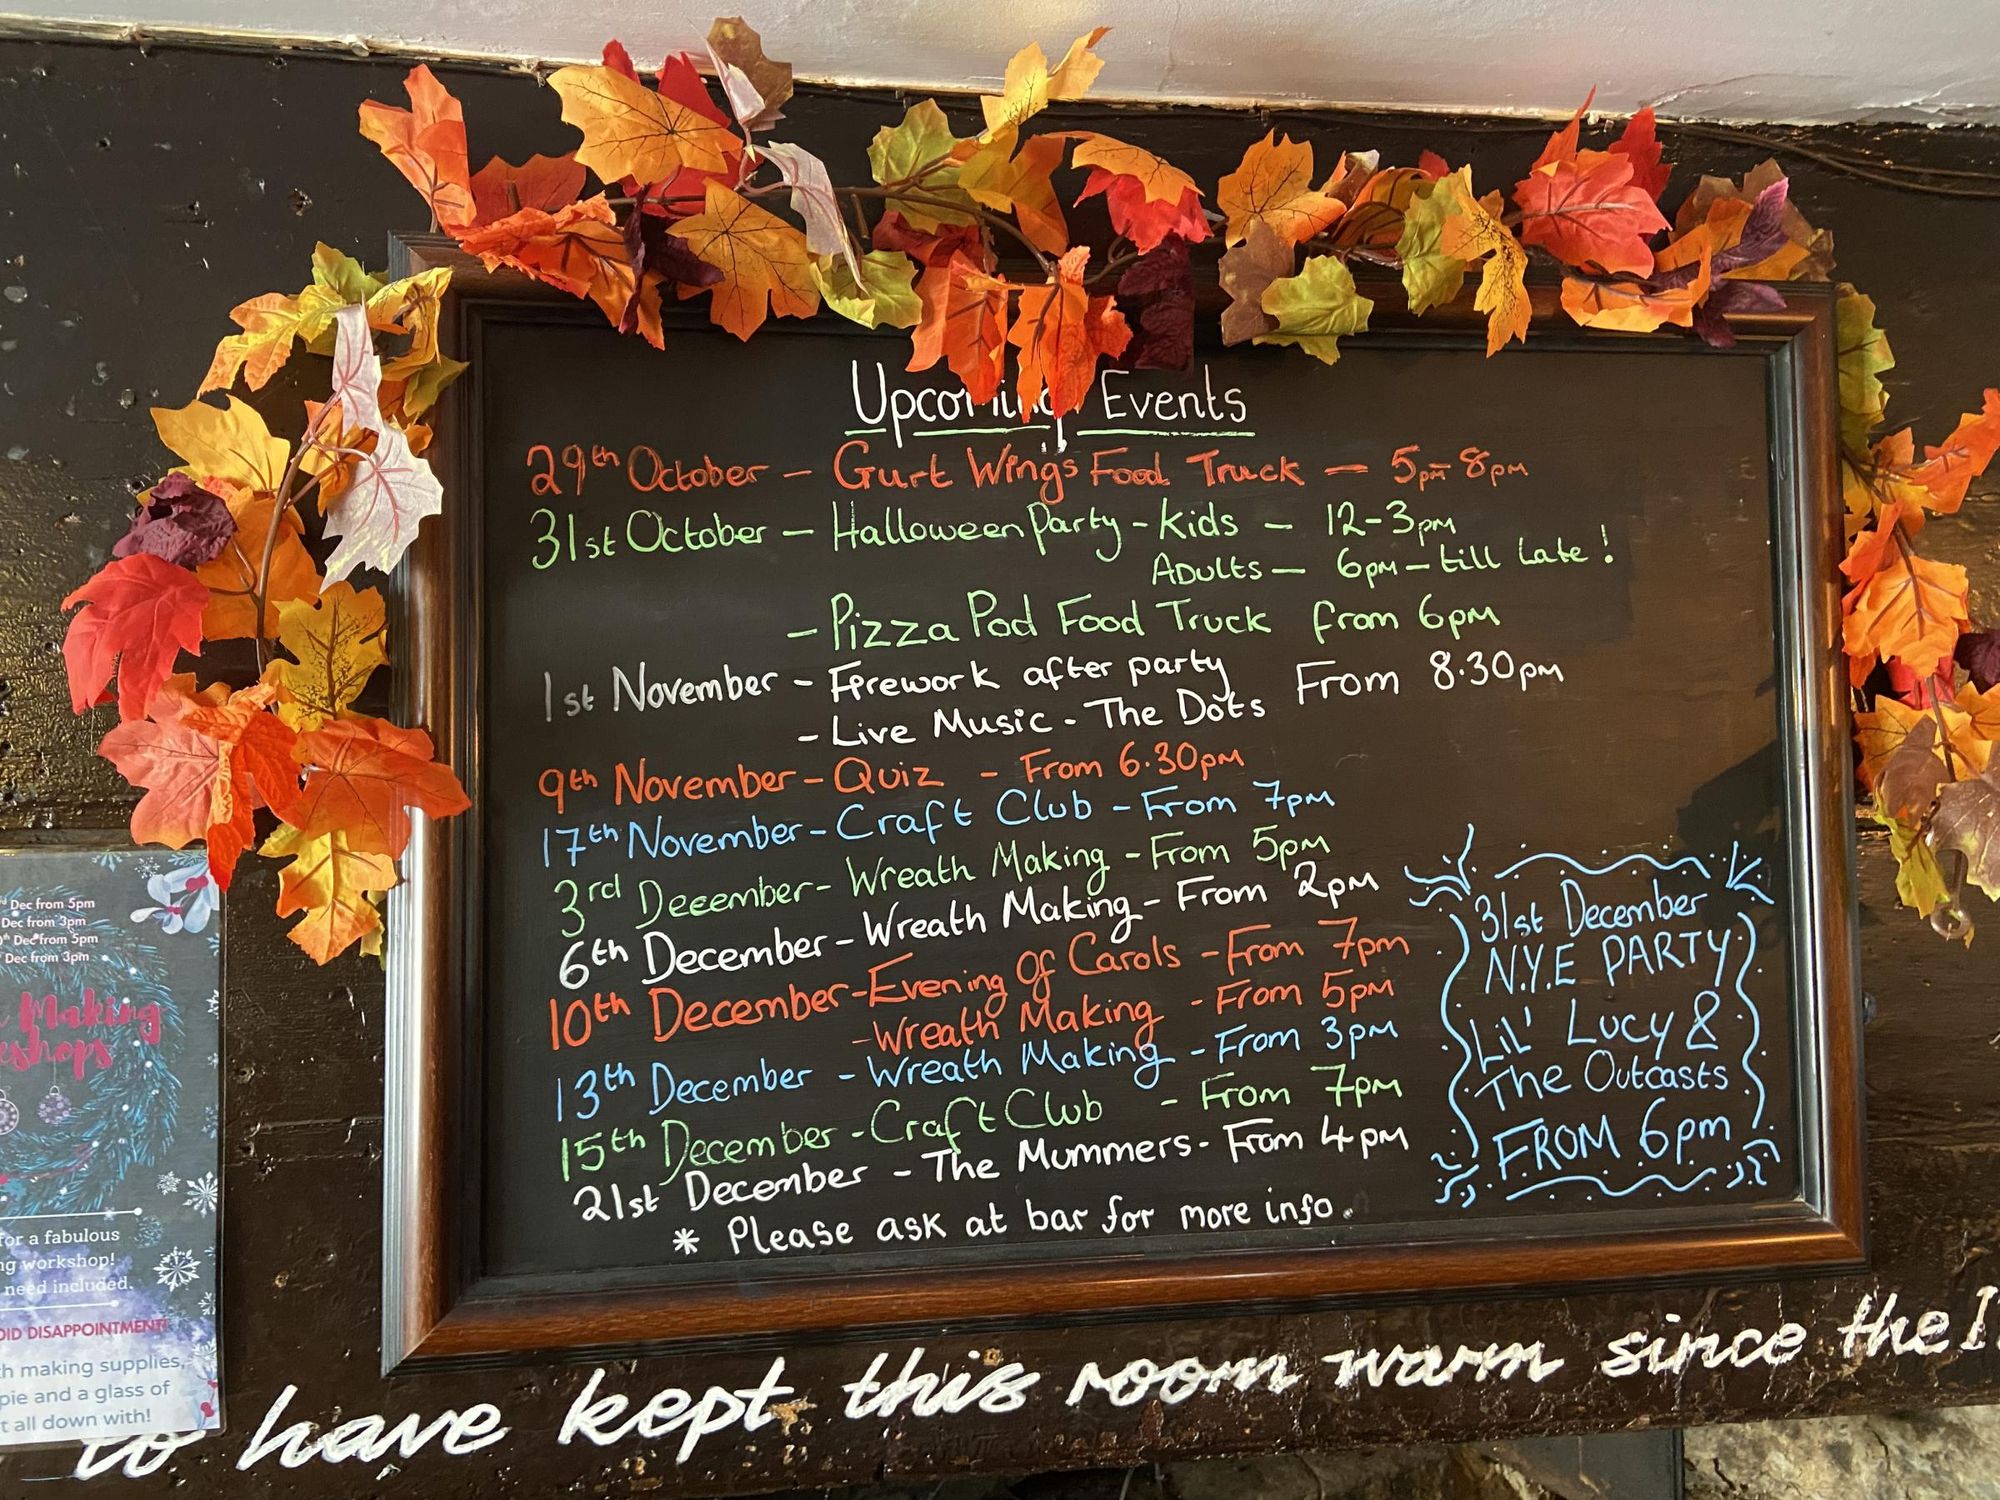 Upcoming Events
29th October - Gurt Wings Food Truck - 5pm-8pm
31st October - Halloween Party - Kids - 12-3pm
Adults - 6pm - till Late!
- Pizza Pod Food Truck from 6pm
1st November - Firework after party
- Live Music - The Dots From 8.30pm
9th November - Quiz - From 6.30pm
17th November - Craft Club - From 7pm
3rd December - Wreath Making - From 5pm
6th December - Wreath Making - From 2pm
10th December - Evening Of Carols - From 7pm
- Wreath Making - From 5pm
13th December - Wreath Making - From 3pm
15th December - Craft Club - From 7pm
21st December - The Mummers - From 4pm
* Please ask at bar for more info.
31st December
N.Y.E PARTY
Lil' Lucy &
The Outcasts
FROM 6pm
Dec from 5pm
Dec from 3pm
Dec from 5pm
Dec from 3pm
Making
for a fabulous
workshop!
need included.
DISAPPOINTMENT!
making supplies,
pie and a glass of
all down with!
to have kept this room warm since the